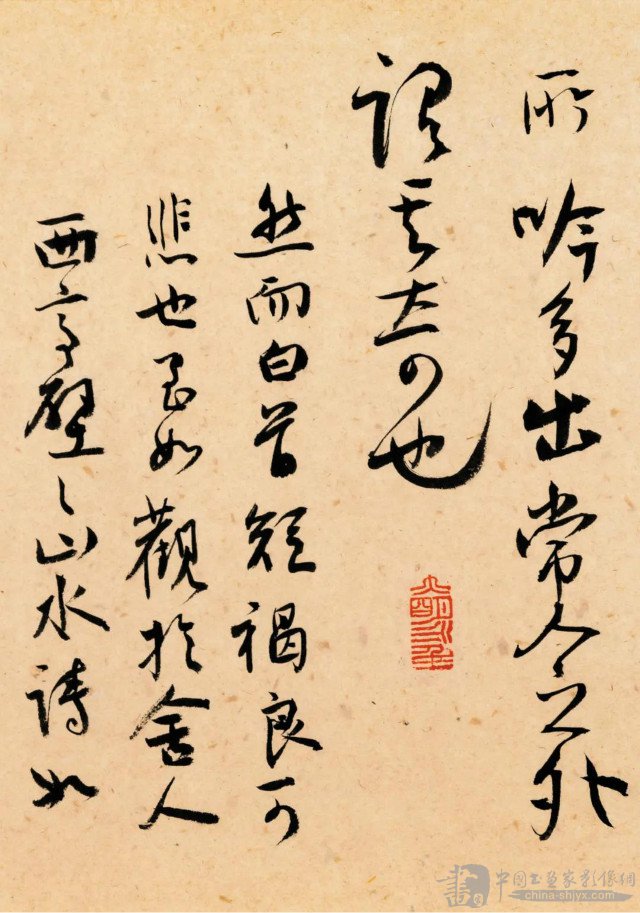 所吟多出常人之外
可也
然而白首短褐良可
悲也至如觀於舍人
西亭壁山水詩如
書
中國书画家影像網
china-shjyx.com